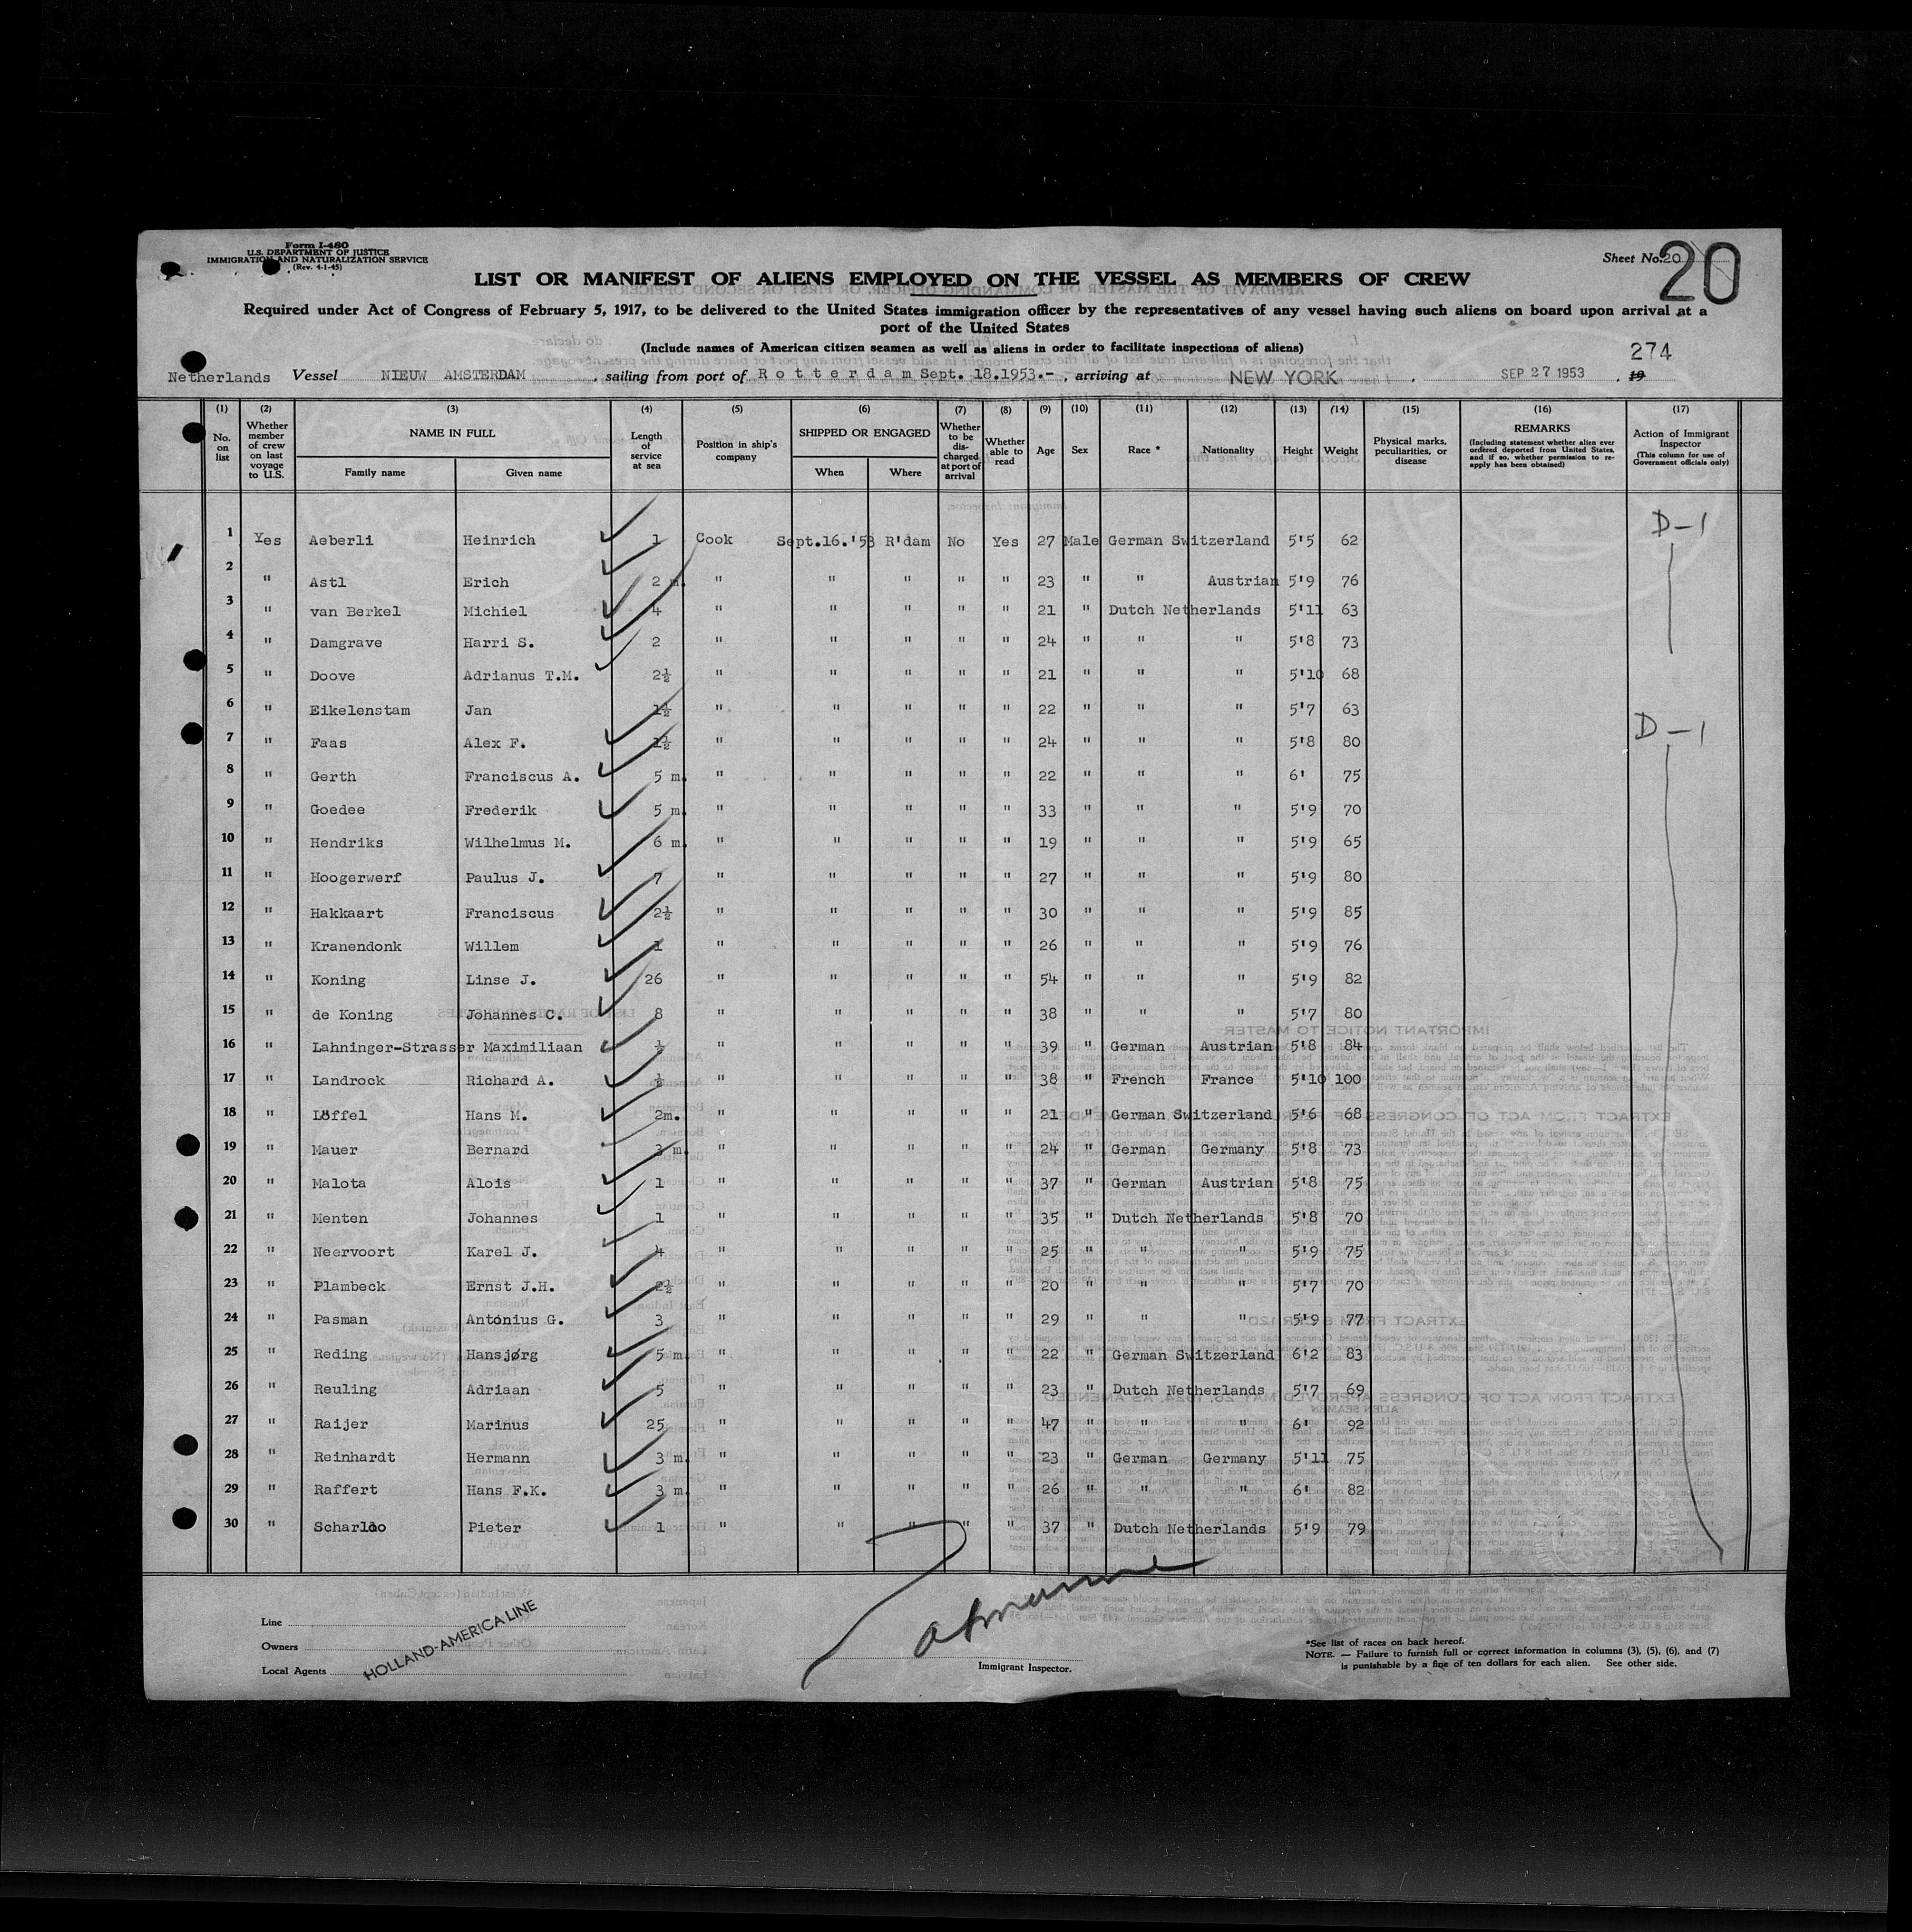 Form I-480
U.S. DEPARTMENT OF JUSTICE
IMMIGRATION AND NATURALIZATION SERVICE
(Rev. 4-1-45)
Sheet No. 20
20
LIST OR MANIFEST OF ALIENS EMPLOYED ON THE VESSEL AS MEMBERS OF CREW
Required under Act of Congress of February 5, 1917, to be delivered to the United States immigration officer by the representatives of any vessel having such aliens on board upon arrival at a
port of the United States
(Include names of American citizen seamen as well as aliens in order to facilitate inspections of aliens)
274
Netherlands Vessel NIEUW AMSTERDAM, sailing from port of Rotterdam Sept. 18.1953.-, arriving at NEW YORK, SEP 27 1953, 19
(1) (2) (3) (4) (5) (6) (7) (8) (9) (10) (11) (12) (13) (14) (15) (16) (17)
No. on list
Whether member of crew on last voyage to U.S.
NAME IN FULL
Family name Given name
Length of service at sea
Position in ship's company
SHIPPED OR ENGAGED
When Where
Whether to be discharged at port of arrival
Whether able to read
Age
Sex
Race *
Nationality
Height
Weight
Physical marks, peculiarities, or disease
REMARKS
(Including statement whether alien ever ordered deported from United States, and if so, whether permission to reapply has been obtained)
Action of Immigrant Inspector
(This column for use of Government officials only)
1 Yes Aeberli Heinrich 1 Cook Sept.16.'53 R'dam No Yes 27 Male German Switzerland 5'5 62 D-1
2 " Astl Erich 2 m. " " " " " 23 " " Austrian 5'9 76
3 " van Berkel Michiel 4 " " " " " 21 " Dutch Netherlands 5'11 63
4 " Damgrave Harri S. 2 " " " " " 24 " " " 5'8 73
5 " Doove Adrianus T.M. 2½ " " " " " 21 " " " 5'10 68
6 " Eikelenstam Jan 1½ " " " " " 22 " " " 5'7 63
7 " Faas Alex F. 1½ " " " " " 24 " " " 5'8 80 D-1
8 " Gerth Franciscus A. 5 m. " " " " " 22 " " " 6' 75
9 " Goedee Frederik 5 m. " " " " " 33 " " " 5'9 70
10 " Hendriks Wilhelmus M. 6 m. " " " " " 19 " " " 5'9 65
11 " Hoogerwerf Paulus J. 7 " " " " " 27 " " " 5'9 80
12 " Hakkaart Franciscus 2½ " " " " " 30 " " " 5'9 85
13 " Kranendonk Willem 1 " " " " " 26 " " " 5'9 76
14 " Koning Linse J. 26 " " " " " 54 " " " 5'9 82
15 " de Koning Johannes C. 8 " " " " " 38 " " " 5'7 80
16 " Lahninger-Strasser Maximiliaan ½ " " " " " 39 " German Austrian 5'8 84
17 " Landrock Richard A. ½ " " " " " 38 " French France 5'10 100
18 " Löffel Hans M. 2m. " " " " " 21 " German Switzerland 5'6 68
19 " Mauer Bernard 3 m. " " " " " 24 " German Germany 5'8 73
20 " Malota Alois 1 " " " " " 37 " German Austrian 5'8 75
21 " Menten Johannes 1 " " " " " 35 " Dutch Netherlands 5'8 70
22 " Neervoort Karel J. 4 " " " " " 25 " " " 5'9 75
23 " Plambeck Ernst J.H. 2½ " " " " " 20 " " " 5'7 70
24 " Pasman Antonius G. 3 " " " " " 29 " " " 5'9 77
25 " Reding Hansjørg 5 m. " " " " " 22 " German Switzerland 6'2 83
26 " Reuling Adriaan 5 " " " " " 23 " Dutch Netherlands 5'7 69
27 " Raijer Marinus 25 " " " " " 47 " " " 6' 92
28 " Reinhardt Hermann 3 m. " " " " " 23 " German Germany 5'11 75
29 " Raffert Hans F.K. 3 m. " " " " " 26 " " " 6' 82
30 " Pieter 1 " " " " " 37 " Dutch Netherlands 5'9 79
Line
Owners
Local Agents
HOLLAND-AMERICA LINE
Immigrant Inspector.
*See list of races on back hereof.
NOTE. — Failure to furnish full or correct information in columns (3), (5), (6), and (7)
is punishable by a fine of ten dollars for each alien. See other side.